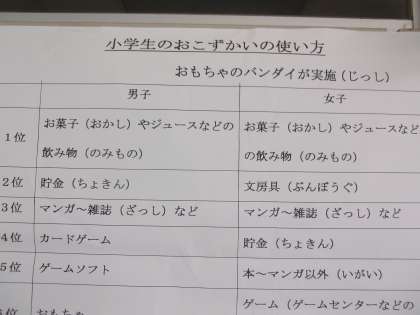 小学生のおこずかいの使い方
おもちゃのバンダイが実施(じっし)
男子 女子
1位 お菓子(おかし)やジュースなどの飲み物(のみもの) お菓子(おかし)やジュースなどの飲み物(のみもの)
2位 貯金(ちょきん) 文房具(ぶんぼうぐ)
3位 マンガ〜雑誌(ざっし)など マンガ〜雑誌(ざっし)など
4位 カードゲーム 貯金(ちょきん)
5位 ゲームソフト 本〜マンガ以外(いがい)
6位 おもちゃ ゲーム(ゲームセンターなどの